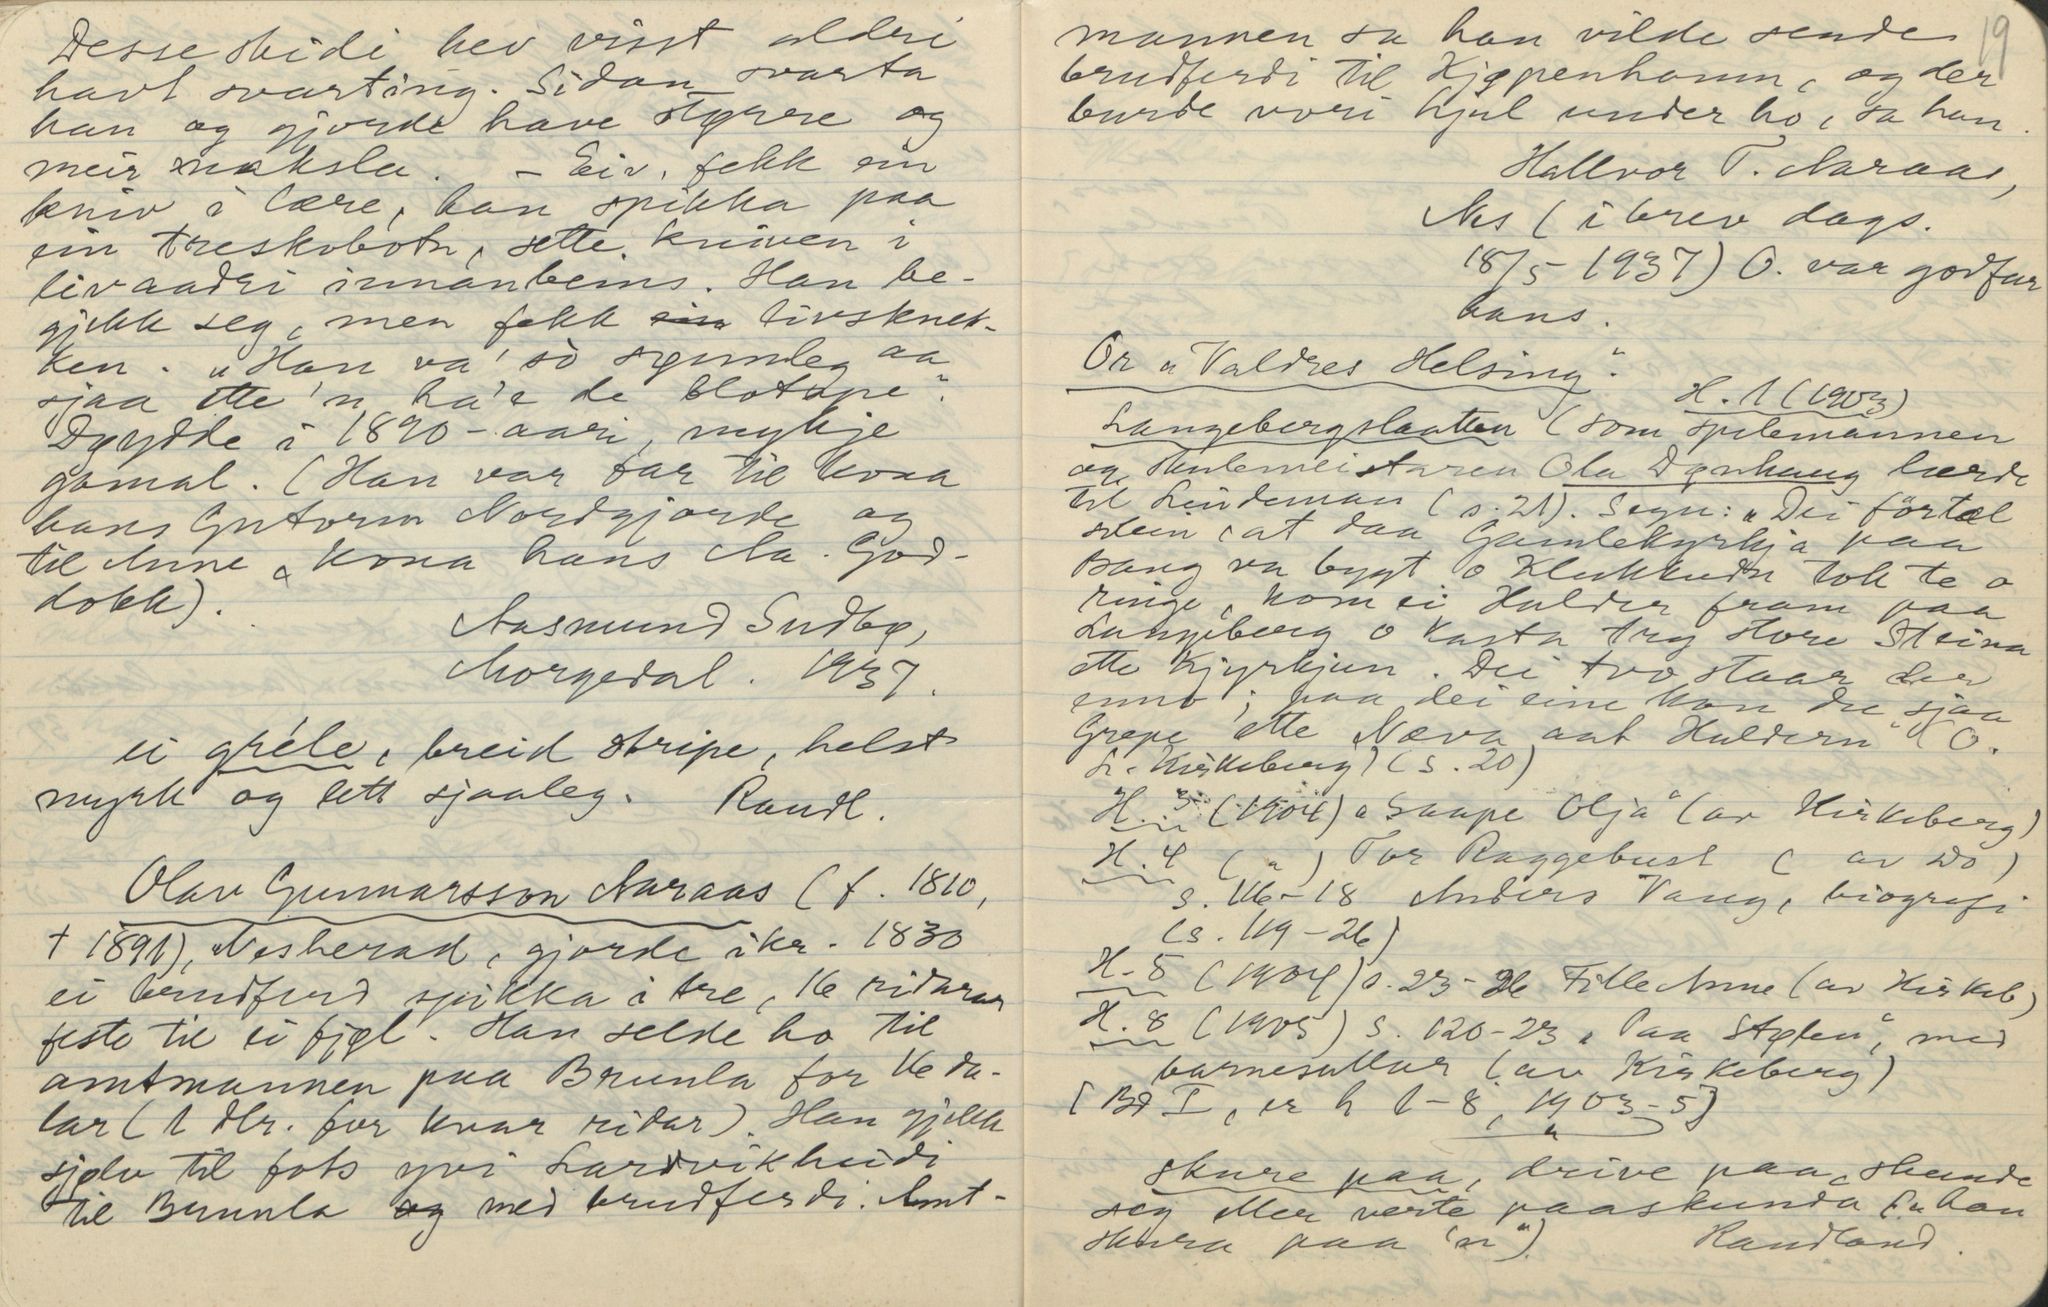 Desse skidi hev visst aldri
havt svarting. Sidan svarta
han og gjorde have større og
meir
kniv i lære, han spikka paa
ein treskobotn, sette kniven i
livaadri innanbeins. Han be-
gjekk seg, men fekk ein livsknek-
ken. "Han va' so syunleg aa
sjaa ette 'n ha'e de blotape".
Døydde i 1890-aari, mykje
gamal. (Han var far til kona
hans Gutorm Nordgjorde og
til Anne, kona hans Aa. God-
dokk).
Aasmund Sudbø,
Morgedal. 1937.
ei gréle, breid stripe, helst
myrk og lett sjaaleg. Raudl.
Olav Gunnarsson Aaraas (f. 1810,
† 1891), Nesherad, gjorde ikr. 1830
ei brudferd spikka i tre, 16 ridarar
feste til ei fjøl. Han selde ho til
amtmannen paa Brunla for 16 da-
lar (1 dlr. for kvar ridar). Han gjekk
sjølv til fots yvi Lardvikheidi
til Brunla og med brudferdi. Amt-
19
mannen sa han vilde sende
brudferdi til Kjøpenhamn, og der
burde vori hjul under ho, sa han.
Hallvor T. Aaraas,
Nes (i brev dags.
18/5 - 1937) O. var godfar
hans.
Or "Valdres Helsing".
H. 1 (1903)
Langebergslaatten (som spelemannen
og skulemeistaren Ola Dønhaug lærde
til Lindeman (s. 21). Segn: "Dei förtæl
slein, at daa Gamlekyrkja paa
Vang va bygt o Klukkudn tok te o
ringe, kom ei Hulder fram paa
Langeberg o kasta try store Steina
ette Kjyrkjun. Dei tvo staar der
enno; paa dei eine kan du sjaa
Grepe ette Næva aat Huldern" (O.
L. Kirkeberg) (s. 20)
H. 3 (1904) "Saape Olja" (av Kirkeberg)
H. 4 ( " ) Tor Raggebust ( av Do)
s. 116-18 Anders Vang, biografi
(s. 119-26)
H. 5 (1904) s. 23-26 FilleAnne (av Kirkeb)
H. 8 (1905) s. 120-23 "Paa Stølen", med
barnesullar (av Kirkeberg)
[Bd I, er h 1-8, 1903-5]
skure paa, drive paa, skunde
seg eller verte paaskunda ("han
skura paa 'n") Raudland.